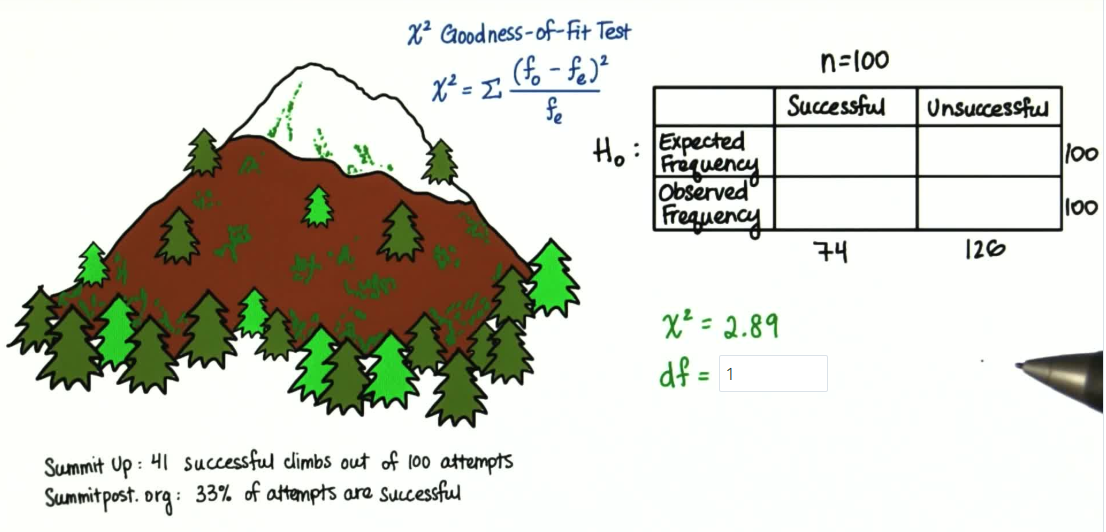 χ² Goodness-of-Fit Test
χ² = Σ (f₀ - fₑ)² / fₑ
n=100
Successful Unsuccessful
H₀: Expected Frequency 100
Observed Frequency 100
74 126
χ² = 2.89
df = 1
Summit Up: 41 successful climbs out of 100 attempts
Summitpost.org: 33% of attempts are successful